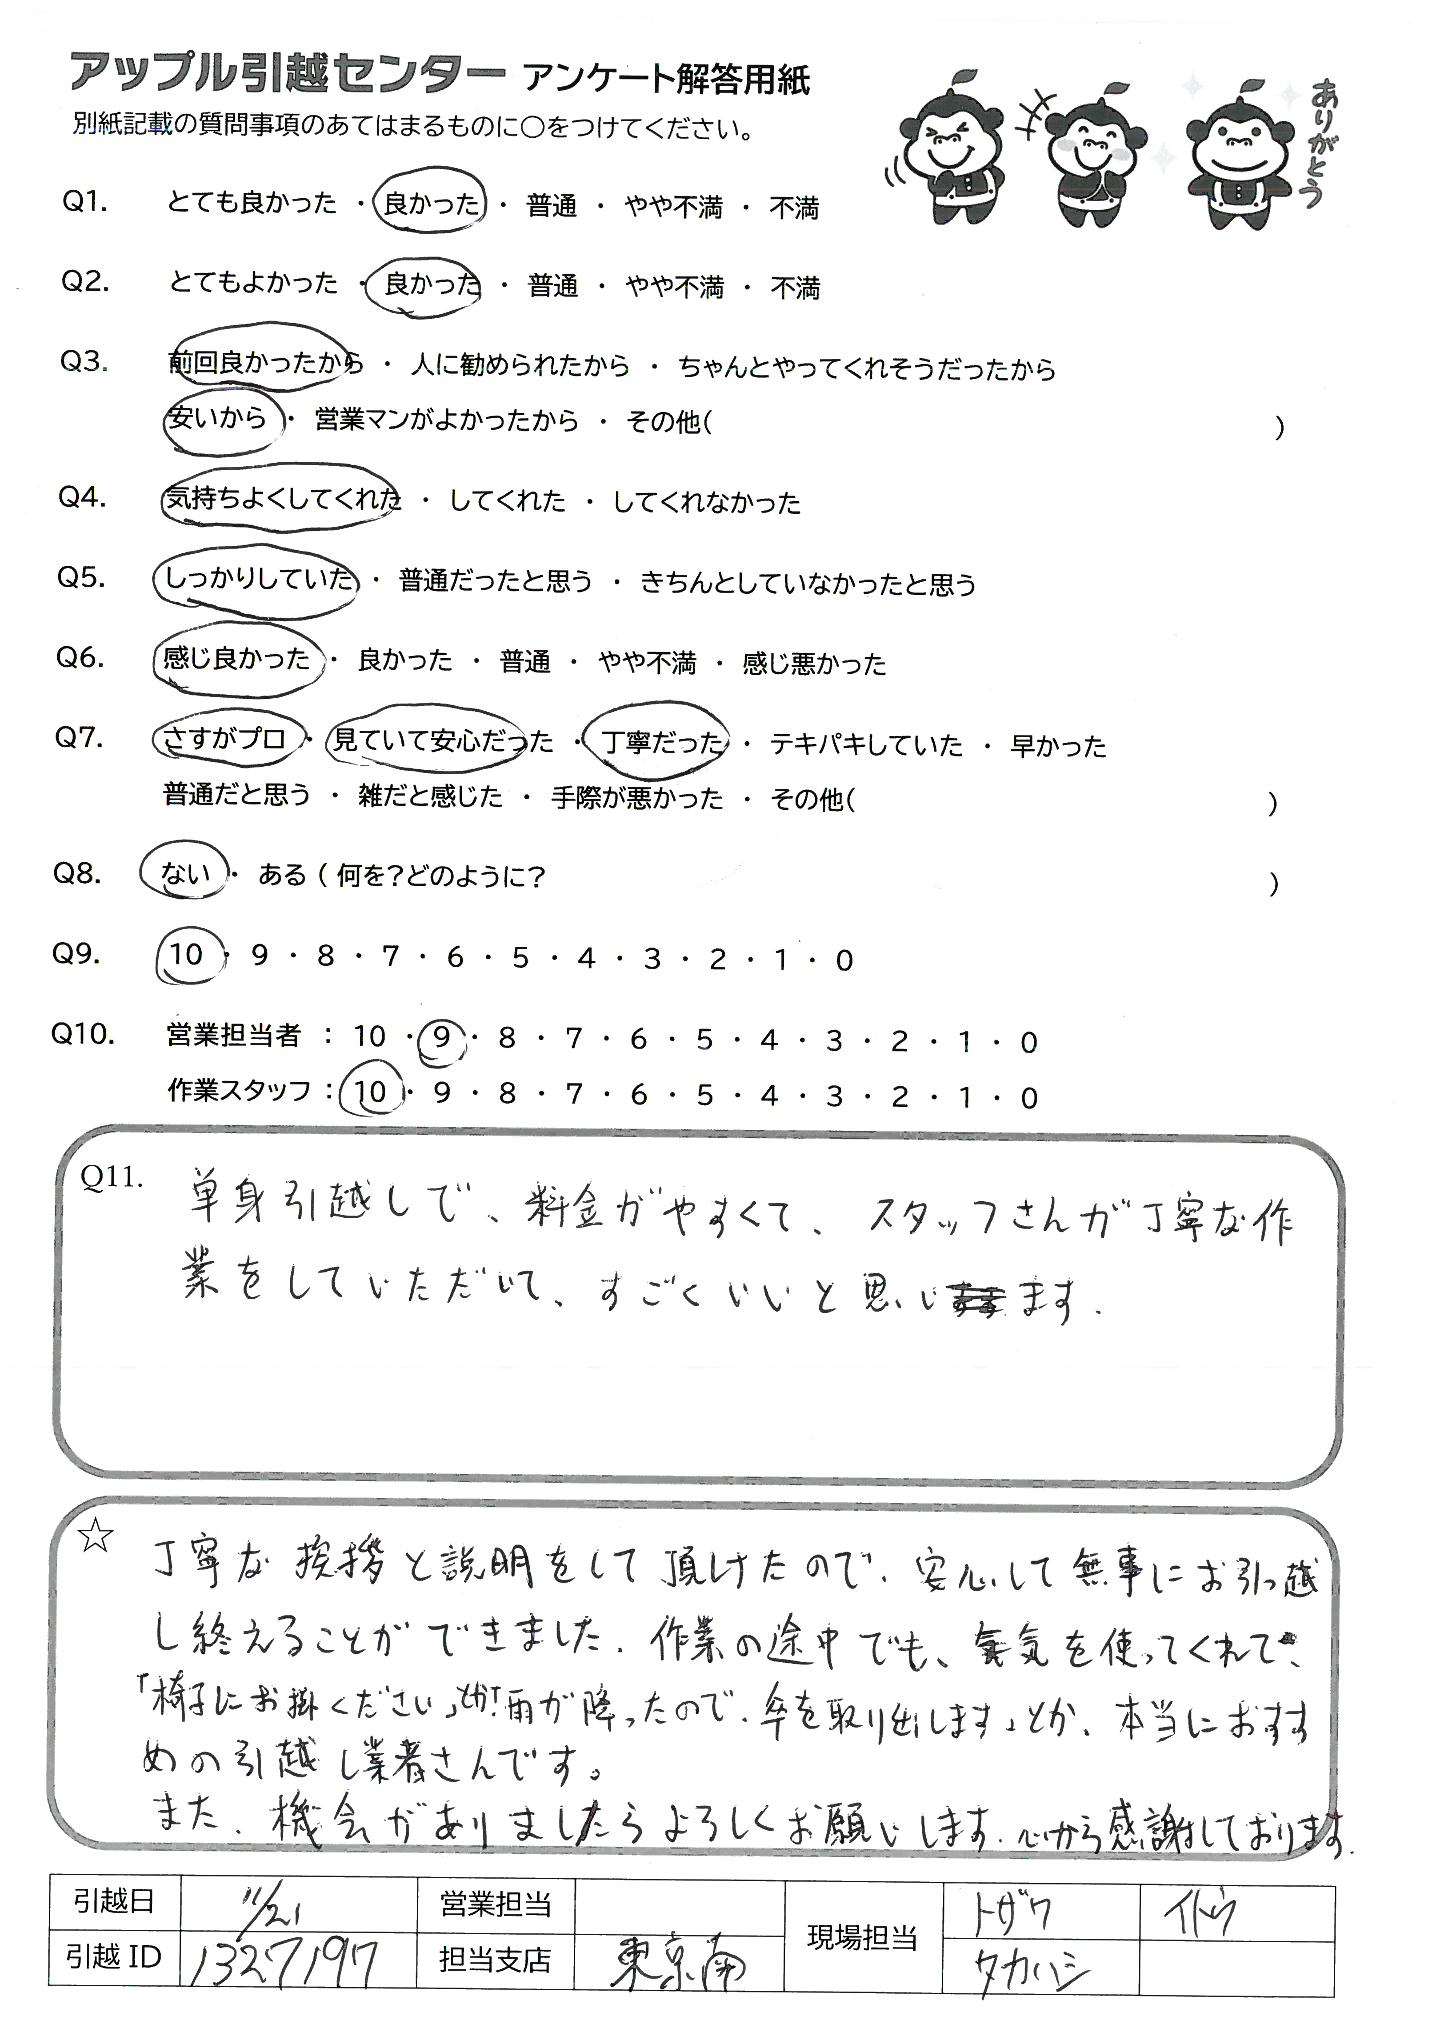 アップル引越センター アンケート解答用紙
別紙記載の質問事項のあてはまるものに○をつけてください。
ありがとう
Q1. とても良かった ・ 良かった ・ 普通 ・ やや不満 ・ 不満
Q2. とてもよかった ・ 良かった ・ 普通 ・ やや不満 ・ 不満
Q3. 前回良かったから ・ 人に勧められたから ・ ちゃんとやってくれそうだったから
安いから ・ 営業マンがよかったから ・ その他( )
Q4. 気持ちよくしてくれた ・ してくれた ・ してくれなかった
Q5. しっかりしていた ・ 普通だったと思う ・ きちんとしていなかったと思う
Q6. 感じ良かった ・ 良かった ・ 普通 ・ やや不満 ・ 感じ悪かった
Q7. さすがプロ ・ 見ていて安心だった ・ 丁寧だった ・ テキパキしていた ・ 早かった
普通だと思う ・ 雑だと感じた ・ 手際が悪かった ・ その他( )
Q8. ない ・ ある ( 何を?どのように? )
Q9. 10 ・ 9 ・ 8 ・ 7 ・ 6 ・ 5 ・ 4 ・ 3 ・ 2 ・ 1 ・ 0
Q10. 営業担当者 : 10 ・ 9 ・ 8 ・ 7 ・ 6 ・ 5 ・ 4 ・ 3 ・ 2 ・ 1 ・ 0
作業スタッフ : 10 ・ 9 ・ 8 ・ 7 ・ 6 ・ 5 ・ 4 ・ 3 ・ 2 ・ 1 ・ 0
Q11. 単身引越しで、料金がやすくて、スタッフさんが丁寧な作
業をしていただいて、すごくいいと思います.
☆ 丁寧な挨拶と説明をして頂けたので、安心して無事にお引っ越
し終えることができました. 作業の途中でも、気を使ってくれて、
「椅子にお掛ください」とか「雨が降ったので、傘を取り出します」とか、本当におすす
めの引越し業者さんです。
また、機会がありましたらよろしくお願いします. 心から感謝しております.
引越日 11/21 営業担当 現場担当 トザワ イトウ
引越 ID 1327197 担当支店 東京南 タカハシ